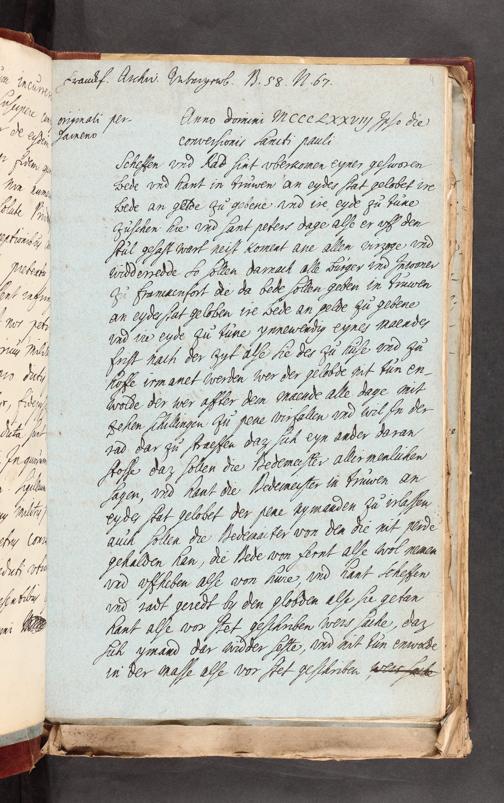 Frankf. Archiv. B. 58. N. 67.
originali per-
gameno
Anno domini MCCCLXXVIII Ipso die
conversionis sancti pauli
Scheffen vnd Rad sint vberkomen eyner gesworen
bede vnd hant in truwen an eydes stat gelobet ire
bede an gelde zu gebene vnd ire eyde zu tune
zuschen hie vnd sant peters dage alse er vff den
stul gesast wart neist koment ane allen virzog vnd
widderredde So sollen darnach alle burger vnd Inwoner
zu Franckinfort die da bede sollen geben in truwen
an eydes stat geloben ire bede an gelde zu gebene
vnd ire eyde zu tune ynnewendig eynes maendes
frist nach der zyt alse sie des zu huse vnd zu
hoffe irmanet werden wer der gelobde nit tun en-
wolde der wer affter dem maende alle dage mit
zehen schillingen zu pene virfallen vnd wol In der
rad dar zu straeffen daz sich eyn ander daran
stosse daz sollen die Bedemeister allirmenlichen
sagen, vnd hant die Bedemeister in truwen an
eydes stat gelobet der pene nymanden zu irlassen
auch sollen die Bedemeister von den die nit perde
gehalden han, die Bede von fernt alse wol nemen
vnd vffheben alse von hure, vnd hant scheffen
vnd radt geredt by den globden alse sie getan
hant alse vor stet geschriben weris sache, daz
sich ymand dar widder saste, vnd nit tun enwolde
in der masse alse vor stet geschriben